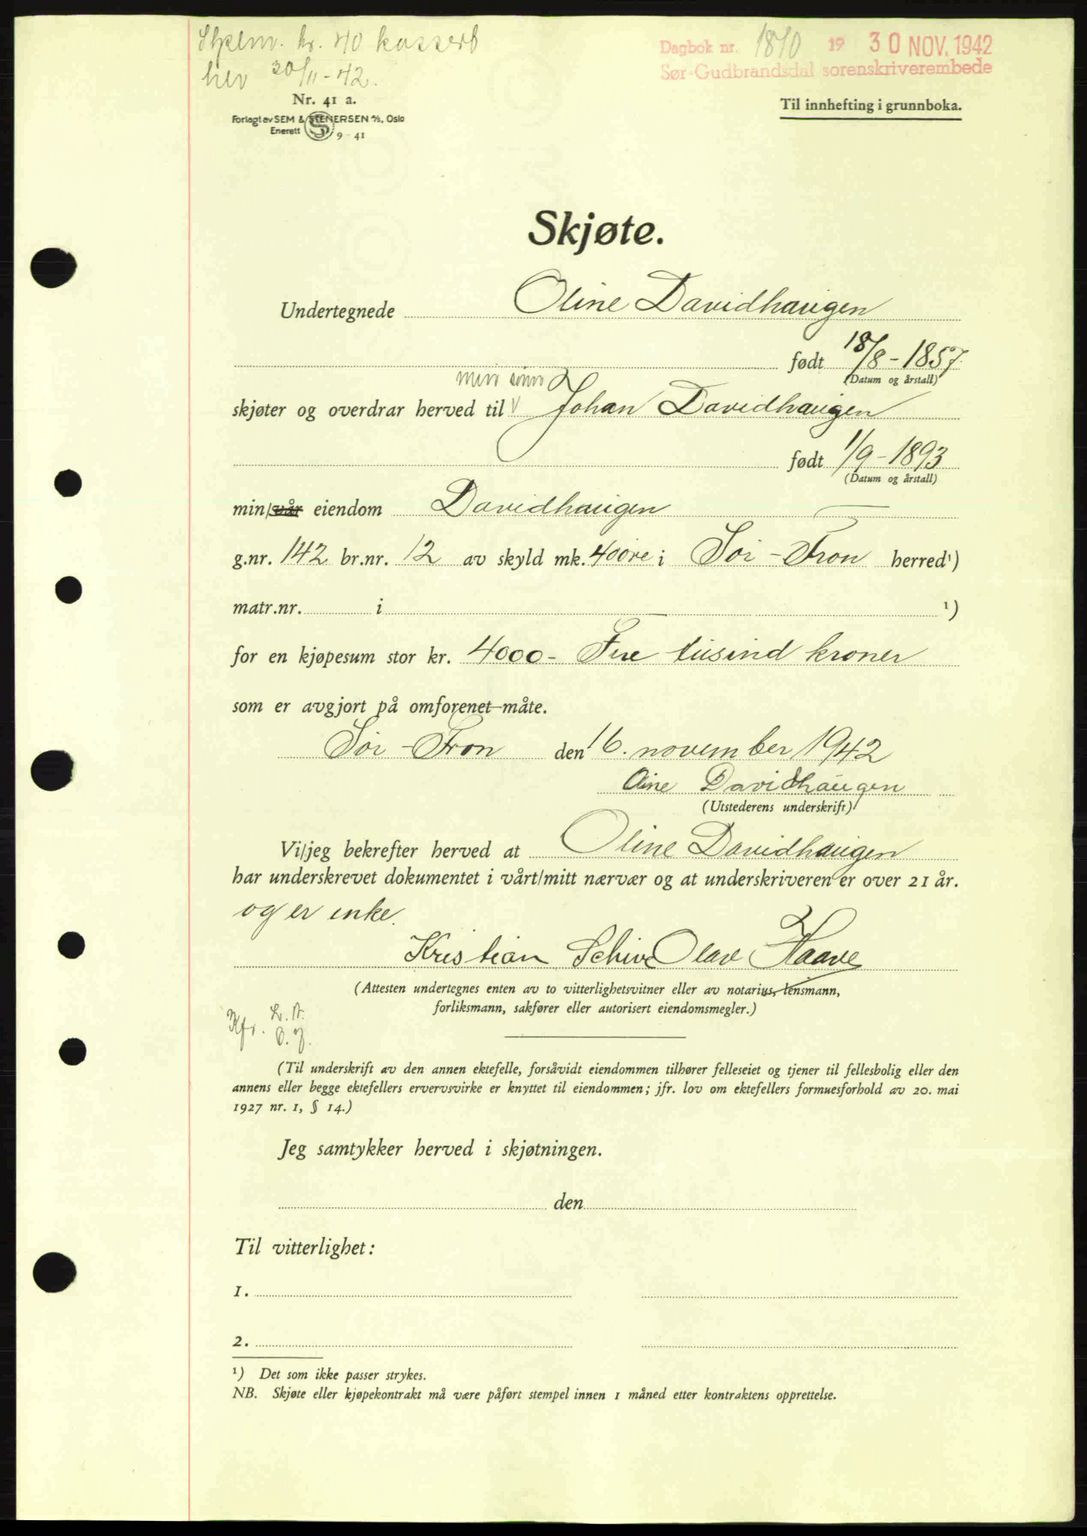 Stplm. kr. 40 kassert
her 30/11-42.
Dagbok nr. 1810 19 30 NOV. 1942
Sør-Gudbrandsdal sorenskriverembede
Nr. 41 a.
Forlagt av SEM & STENERSEN A/S, Oslo
Enerett S 9 - 41
Til innhefting i grunnboka.
Skjøte.
Undertegnede Oline Davidhaugen
født 18/8 - 1857.
(Datum og årstall)
min sønn
skjøter og overdrar herved til V Johan Davidhaugen
født 1/9 - 1893
(Datum og årstall)
min/vår eiendom Davidhaugen
g.nr. 142 br.nr. 12 av skyld mk. 40 øre i Sør-Fron herred¹)
matr.nr. i ¹)
for en kjøpesum stor kr. 4000- Fire tusind kroner
som er avgjort på omforenet måte.
Sør-Fron den 16. november 1942
Oine Davidhaugen
(Utstederens underskrift)
Vi/jeg bekrefter herved at Oline Davidhaugen
har underskrevet dokumentet i vårt/mitt nærvær og at underskriveren er over 21 år.
og er enke.
Kristian Schive Olav Haave
(Attesten undertegnes enten av to vitterlighetsvitner eller av notarius, lensmann,
forliksmann, sakfører eller autorisert eiendomsmegler.)
(Til underskrift av den annen ektefelle, forsåvidt eiendommen tilhører felleseiet og tjener til fellesbolig eller den
annens eller begge ektefellers ervervsvirke er knyttet til eiendommen; jfr. lov om ektefellers formuesforhold av 20. mai
1927 nr. 1, § 14.)
Jeg samtykker herved i skjøtningen.
den
Til vitterlighet:
1.
2.
¹) Det som ikke passer strykes.
NB. Skjøte eller kjøpekontrakt må være påført stempel innen 1 måned etter kontraktens opprettelse.